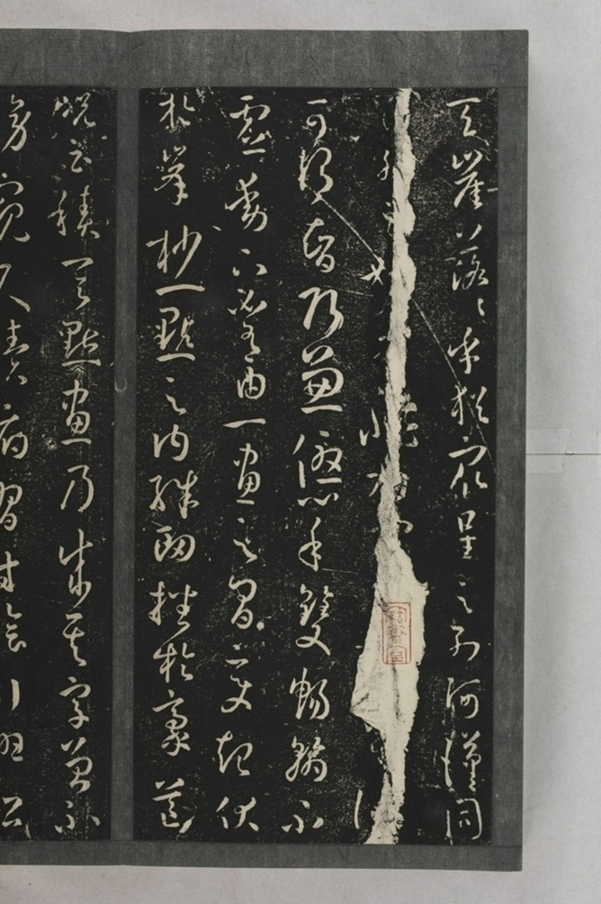 天崖落落乎猶眾星之列河漢同
可謂智巧兼優心手雙暢翰不
虛動下必有由一畫之間變起伏
於峯杪一點之內殊衄挫於豪芒
況云積其點畫乃成其字曾不
傍窺尺牘俯習寸陰引班超